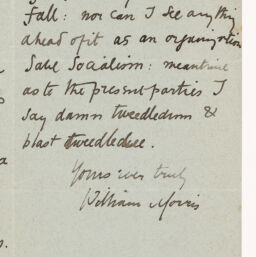 fall: nor can I see anything
ahead of it as an organization
save Socialism: meantime
as to the present parties I
say damn tweedledum &
blast tweedledee.
Yours ever truly
William Morris
a
s.